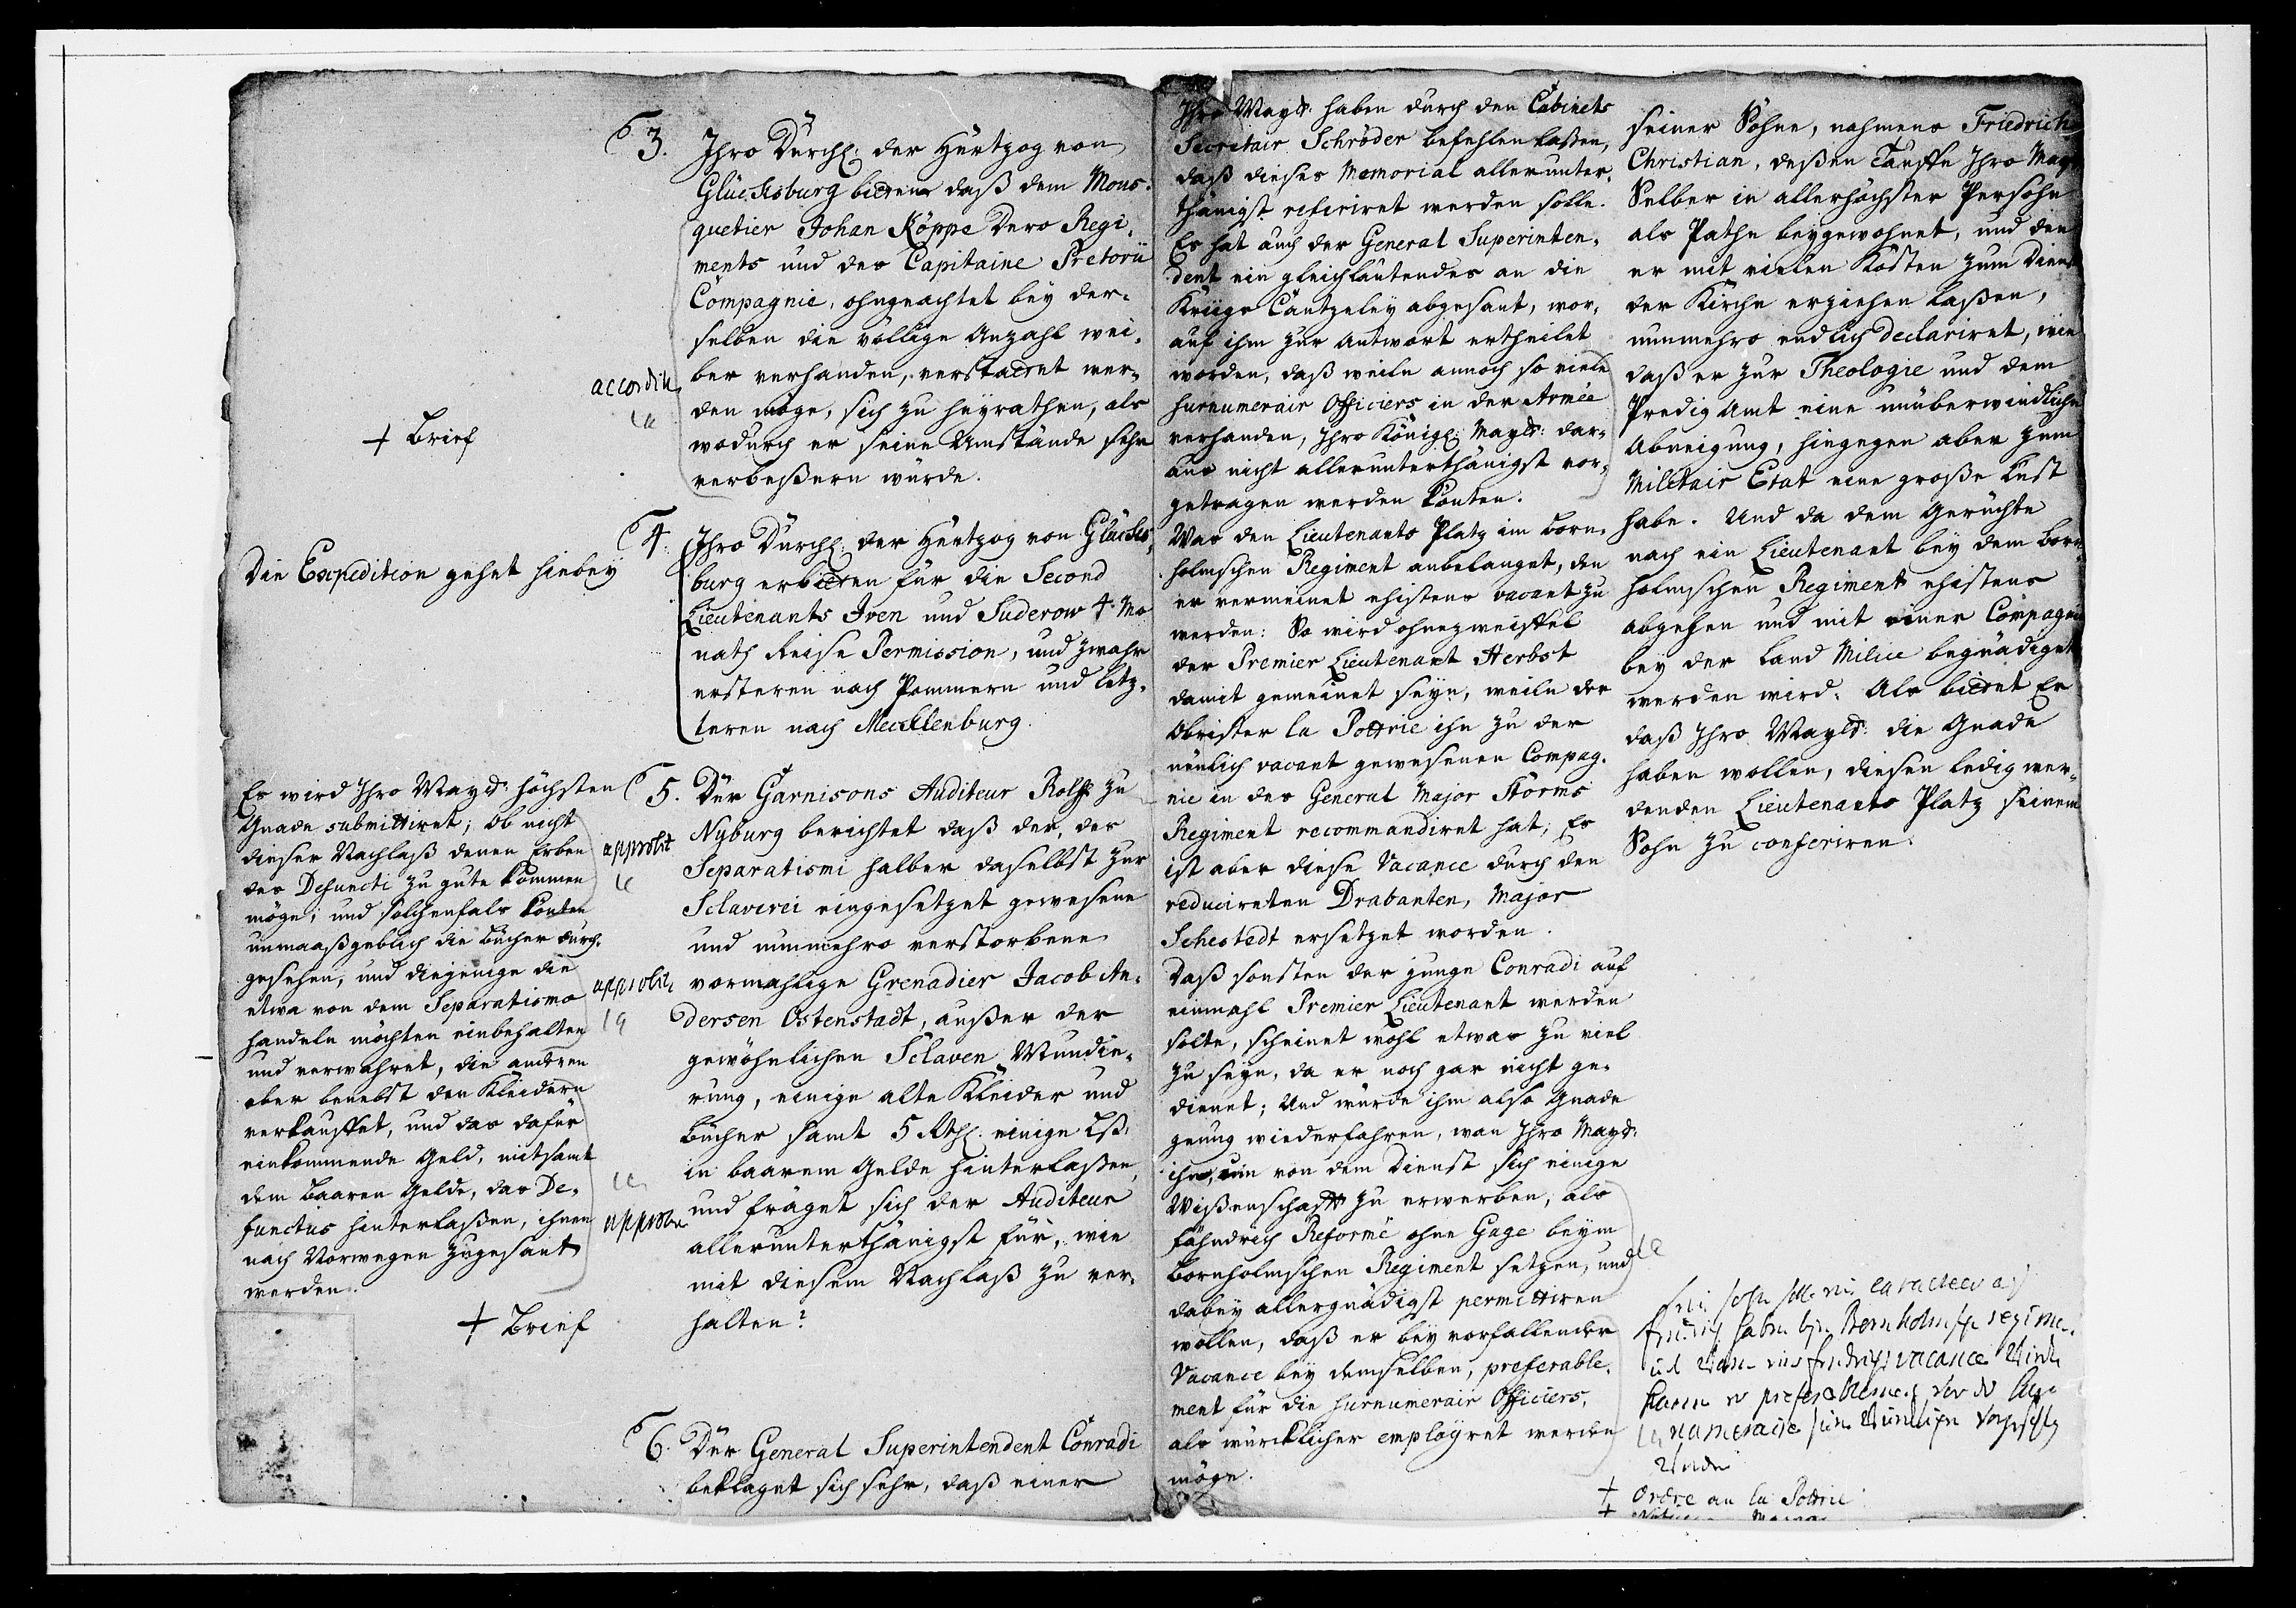 3. Ihro Dürchl: der Hertzog von
Glücksburg bitten daß dem Mous-
quetier Johan Köppe Dero Regi-
ments und des Capitaine Pretorii
Compagnie, ohngeachtet bey der-
selben die völlige Anzahl Wei-
ber verhanden, verstattet wer-
den möge, sich zu heyrathen, als
wodurch er seine Umstände sehr
verbeßern würde.
accordire
+ Brief
4. Ihro Dürchl: der Hertzog von Glücks-
burg erbitten für die Second
Lieutenants Iven und Suderow 4. Mo
nath Reise Permission, und zwahr
ersteren nach Pommern und letz-
teren nach Mecklenburg.
Die Expedition gehet hiebey
5. Der Garnisons Auditeur Rolfs zu
Nyburg berichtet daß der, des
Separatismi halber daselbst zur
Sclaverei eingesetzet gewesene
und nunmehro verstorbene
vormahlige Grenadier Jacob An-
dersen Ostenstadt, außer der
gewöhnlichen Sclaven Mundie-
rung, einige alte Kleider und
Bücher samt 5 Rthl. einige Lß:
in baarem Gelde hinterlaßen,
und fräget sich der Auditeur
allerunterthänigst für, wie
mit diesem Nachlaß zu ver-
halten?
Es wird Ihro Mayt: höchsten
Gnade submittiret; ob nicht
dieser Nachlaß denen Erben
des Defuncti zu gute kommen
möge; und solchenfals konten
unmaaßgeblich die Bücher durch-
gesehen, und diejenige die
etwa von dem Separatismo
handeln möchten einbehalten
und verwahret, die anderen
aber benebst den Kleidern
verkauffet, und das dafür
einkommende Geld, mitsamt
dem baaren Gelde, das De-
functus hinterlaßen, ihnen
nach Norwegen zugesant
werden.
approbire
approbire
approbire
+ Brief
6. Der General Superintendent Conradi
beklaget sich sehr, daß einer
seiner Söhne, nahmens Friedrich
Christian, deßen Tauffe Ihro Mayt:
Selber in allerhöchster Persohn
als Pathe beygewohnet, und den
er mit vielen Kosten zum Dienst
der Kirche erziehen laßen,
nunmehro endlich declariret, wie
daß er zur Theologie und dem
Predig Amt eine unüberwindliche
Abneigung, hingegen aber zum
Militair Etat eine große Lust
habe. Und da dem Gerüchte
nach ein Lieutenant bey dem Born-
holmschen Regiment ehistens
abgehen und mit einer Compagnie
bey der Land Milice begnädiget
werden wird: Als bittet Er
daß Ihro Mayt: die Gnade
haben wollen, diesen ledig wer-
denden Lieutenants Platz seinem
Sohn zu conferiren.
Ihro Mayt: haben durch den Cabinets
Secretair Schröder befehlen laßen,
daß dieses Memorial allerunter-
thänigst referiret werden solle.
Es hat auch der General Superinten-
dent ein gleichlautendes an die
Kriigs Cantzeley abgesant, wor-
auf ihm zur Antwort ertheilet
worden, daß weiln annoch so viele
surnumerair Officiers in der Armée
verhanden, Ihro Königl: Mayt: dar-
aus nicht allerunterthänigst vor-
getragen werden konten.
Was den Lieutenants Platz im Born-
holmschen Regiment anbelanget, den
er vermeinet ehistens vacant zu
werden: So wird ohnezweiffel
der Premier Lieutenant Herbst
damit gemeinet seyn, weiln der
Obrister la Pottrie ihn zu der
neulich vacant gewesenen Compag-
nie in des General Major Storms
Regiment recommandiret hat; Es
ist aber diese Vacance durch den
reducireten Drabanten, Major
Sehestedt ersetzet worden.
Daß sonsten der junge Conradi auf
einmahl Premier Lieutenant werden
solte, scheinet wohl etwas zu viel
zu seyn, da er noch gar nicht ge-
dienet; Und würde ihm also Gnade
genug wiederfahren, wan Ihro Mayt:
ihn, um von dem Dienst sich einige
Wißenschafft zu erwerben, als
Fähndrich Reformé ohne Gage beym
Bornholmschen Regiment setzen, und
dabey allergnädigst permittiren
wollen, daß er bey vorfallender
Vacance bey demselben, preferable-
ment für die surnumerair Officiers,
als würcklicher employret werden
möge.
sein sohn soll ein caracteer als
haben bejm Bornholmsche regime
vacance
preferablement vor
+ Ordre an la Pottrie
+